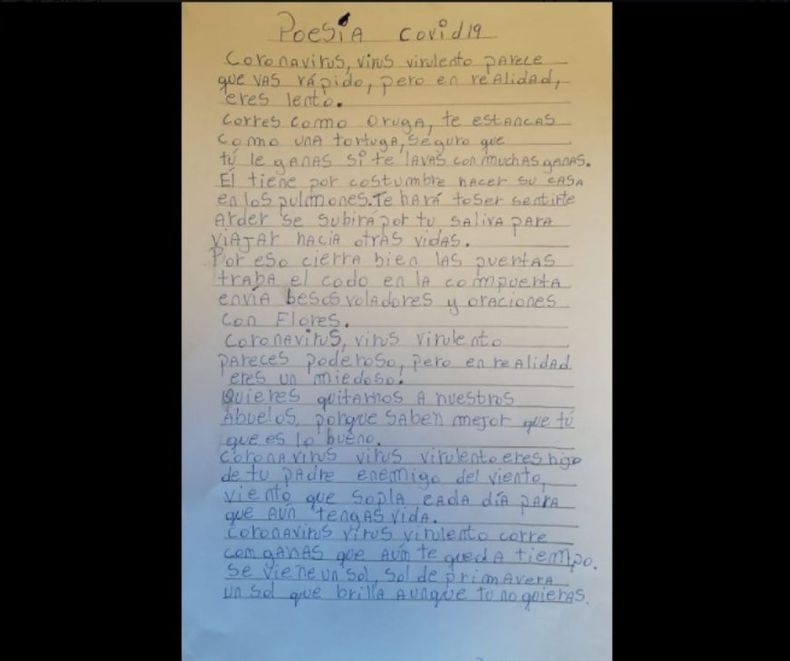 Poesía covid19
Coronavirus, virus virulento parece
que vas rápido, pero en realidad,
eres lento.
Corres como oruga, te estancas
como una tortuga, seguro que
tú le ganas si te lavas con muchas ganas.
El tiene por costumbre hacer su casa
en los pulmones. Te hará toser sentirte
arder se subirá por tu saliva para
viajar hacia otras vidas.
Por eso cierra bien las puertas
traba el codo en la compuerta
envía besos voladores y oraciones
con Flores.
Coronavirus, virus virulento
pareces poderoso, pero en realidad
eres un miedoso.
Quieres quitarnos a nuestros
abuelos, porque saben mejor que tú
que es lo bueno.
Coronavirus virus virulento eres hijo
de tu padre enemigo del viento,
viento que sopla cada día para
que aún tengas vida.
Coronavirus virus virulento corre
con ganas que aún te queda tiempo.
Se viene un sol, sol de primavera
un sol que brilla aunque tu no quieras.